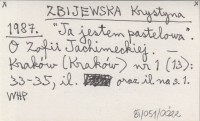 ZBIJEWSKA Krystyna
1987. "Ja jestem pastelowa".
O Zofii Jachimeckiej. —
Kraków (Kraków) nr 1 (13):
33-35, il. oraz il na s. 1.
WHP